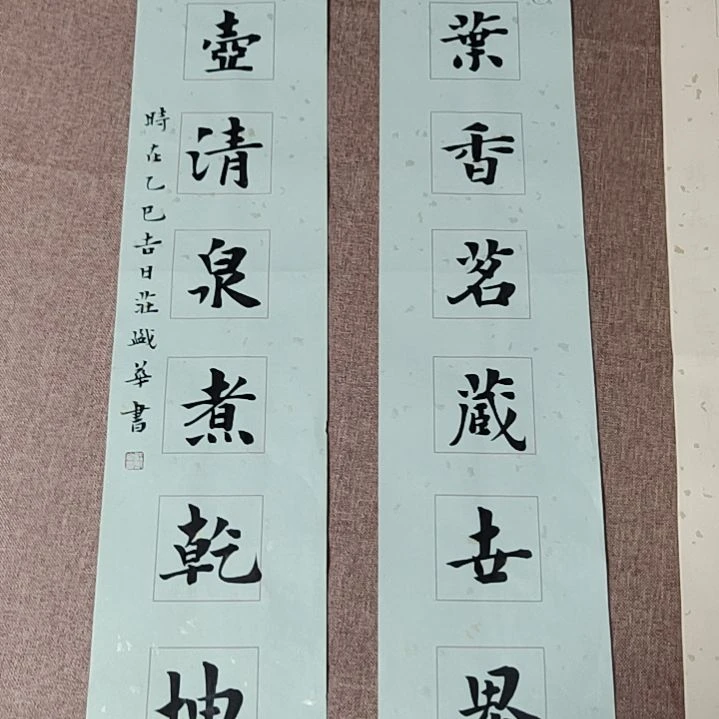 葉香茗蔵世界
壺清泉煮乾坤
時在乙巳吉日莊盛華書